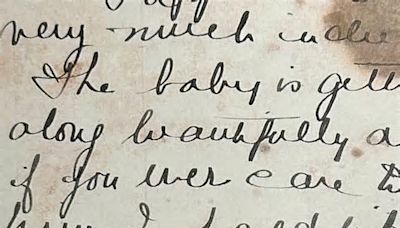 very much inde
The baby is gett
along beautifully a
if you ever care t